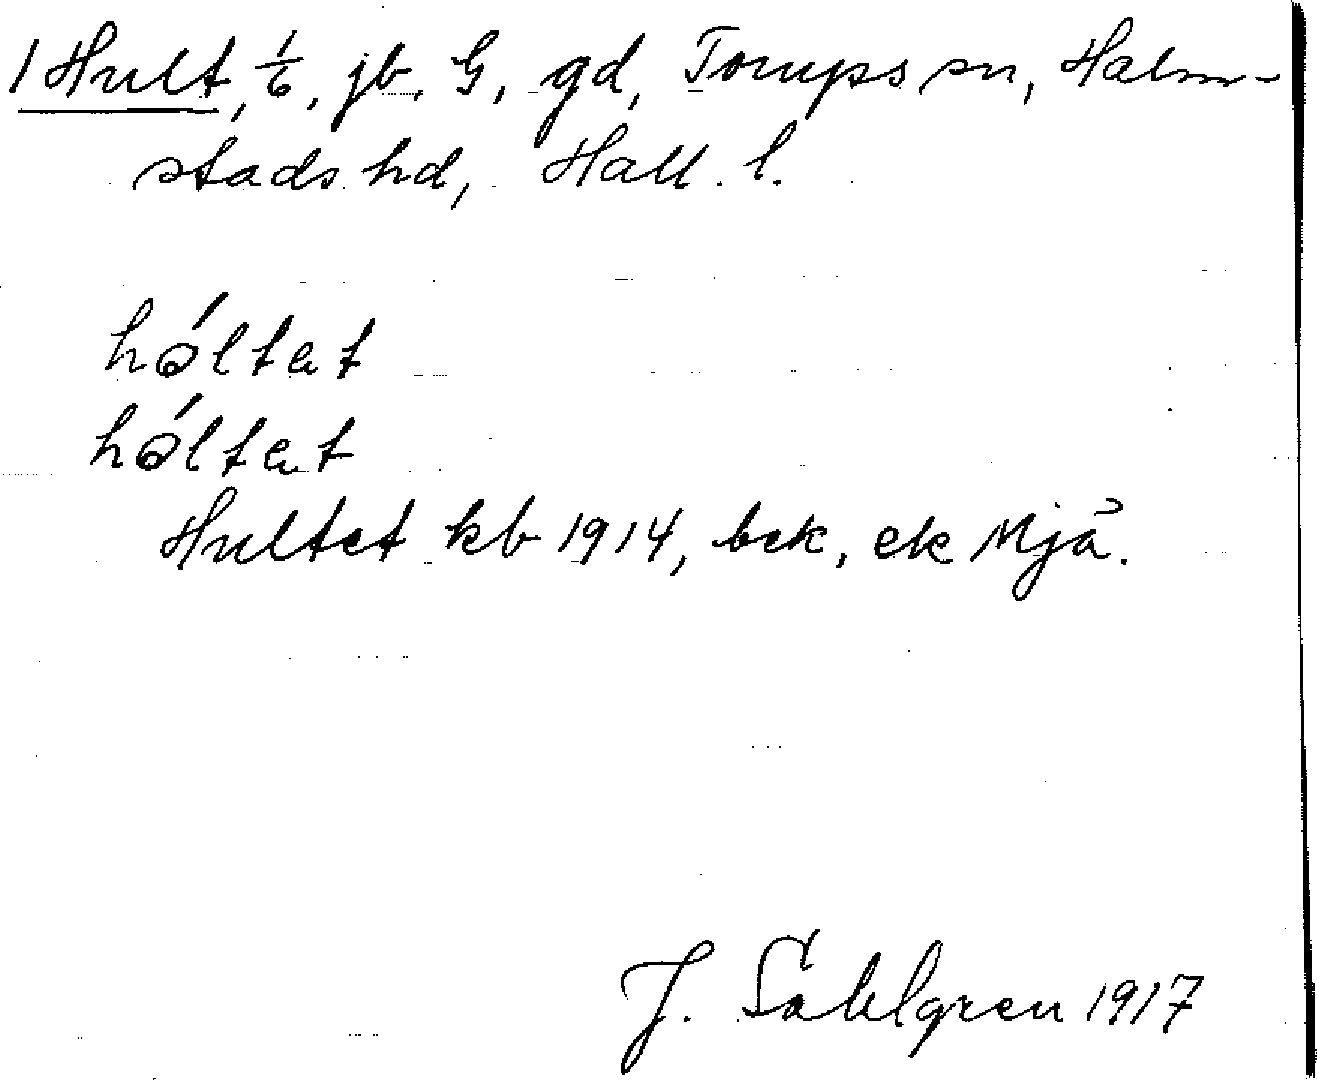 1 Hult, 1/6, jb. G, gd, Torups sn, Halm-
stads hd, Hall. l.
hóltet
hóltet
Hultet kb 1914, bek, ek Mjå.
J. Sahlgren 1917